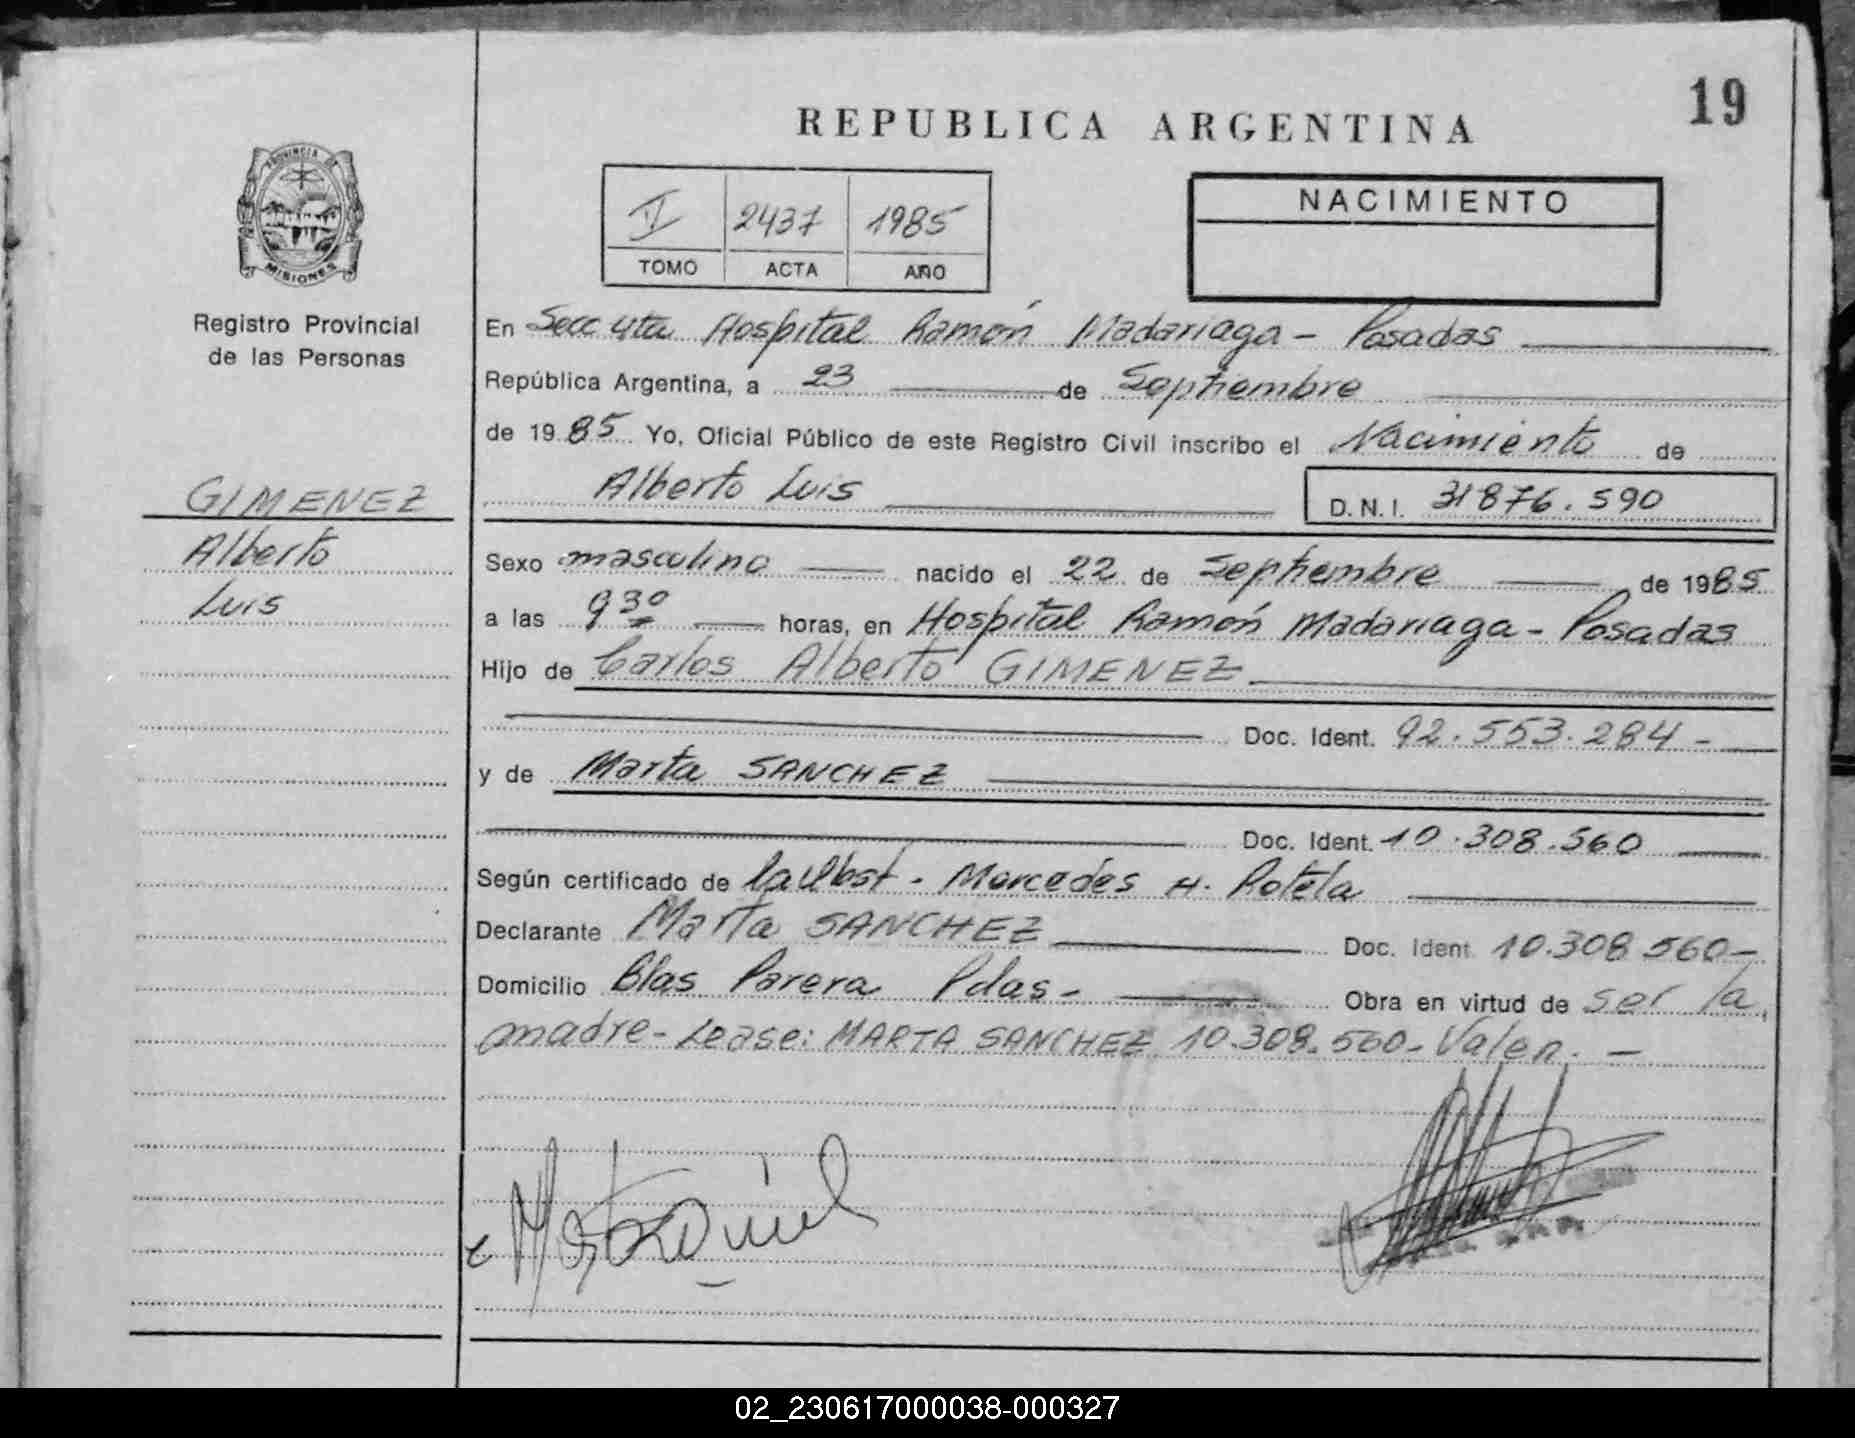 19
REPUBLICA ARGENTINA
PROVINCIA DE
MISIONES
Registro Provincial
de las Personas
V 2437 1985
TOMO ACTA AÑO
NACIMIENTO
En Secc 4ta Hospital Ramón Madariaga - Posadas
República Argentina, a 23 de Septiembre
de 1985 Yo, Oficial Público de este Registro Civil inscribo el Nacimiento de
Alberto Luis D.N.I. 31876.590
GIMENEZ
Alberto
Luis
Sexo masculino nacido el 22 de Septiembre de 1985
a las 9 30 horas, en Hospital Ramón Madariaga - Posadas
Hijo de Carlos Alberto GIMENEZ
Doc. Ident. 92.553.284 -
y de Marta SANCHEZ
Doc. Ident. 10.308.560
Según certificado de la Obst. Mercedes H. Rotela
Declarante Marta SANCHEZ Doc. Ident. 10.308.560 -
Domicilio Blas Parera Pdas - Obra en virtud de ser la
madre - Lease: MARTA SANCHEZ 10.308.560 - Valen. -
02_230617000038-000327